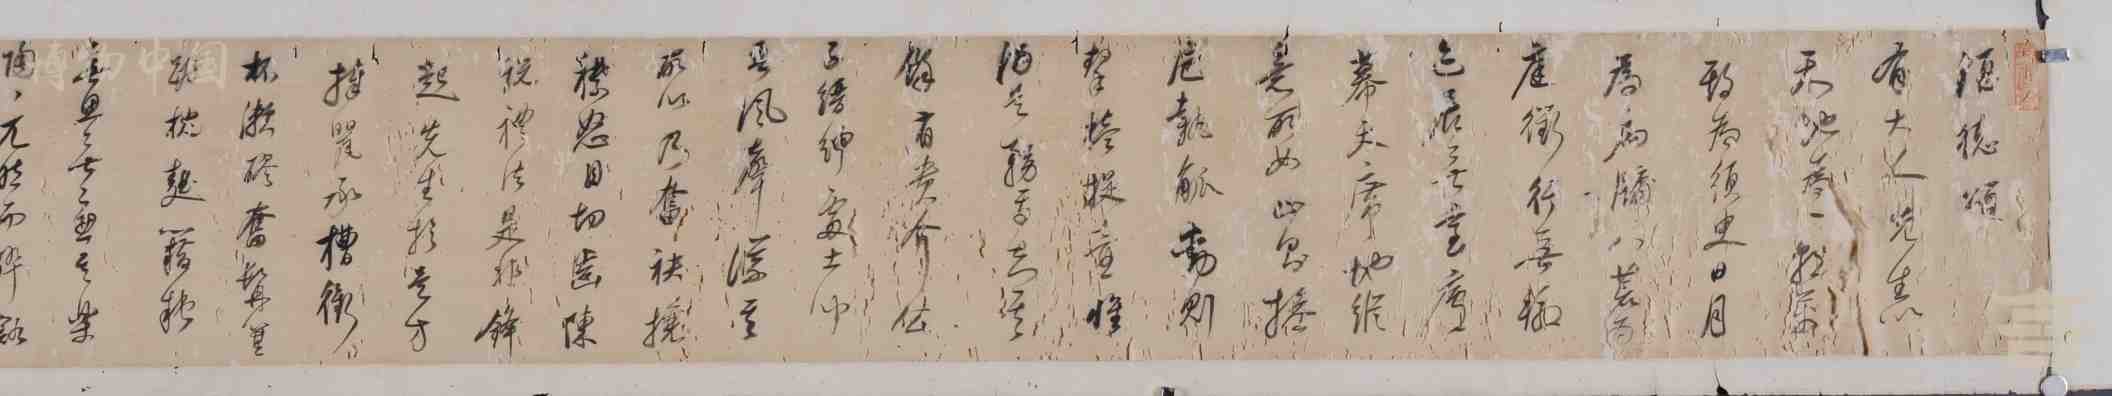 酒德頌
有大人先生以
天地為一朝萬
期為須臾日月
為扃牖八荒為
庭衢行無轍
迹居無室廬
幕天席地縱
意所如止則操
卮執觚動則
挈榼提壺惟
酒是務焉知其
餘有貴介公
子縉紳處士聞
吾風聲議其
所以乃奮袂攘
襟怒目切齒陳
說禮法是非鋒
起先生於是方
捧罌承槽銜
杯漱醪奮髯箕
踞枕麴藉糟
無思無慮其樂
陶陶兀然而醉豁
中国